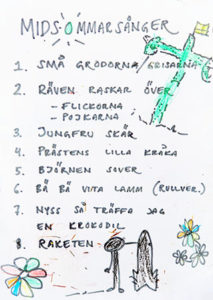 MIDSOMMARSÅNGER
1. SMÅ GRODORNA/GRISARNA
2. RÄVEN RASKAR ÖVER
- FLICKORNA
- POJKARNA
3. JUNGFRU SKÄR
4. PRÄSTENS LILLA KRÅKA
5. BJÖRNEN SOVER
6. BÄ BÄ VITA LAMM (RULLVER.)
7. NYSS SÅ TRÄFFA JAG
EN KROKODIL
8. RAKETEN